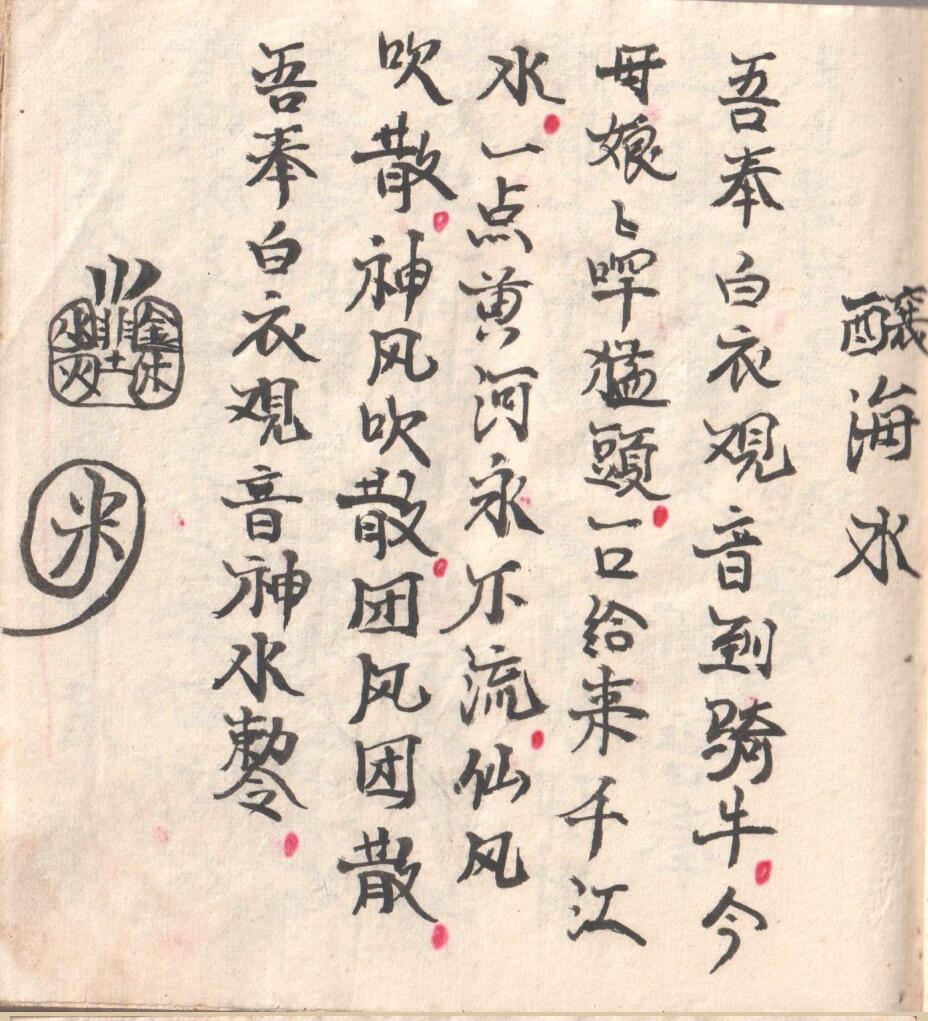 釀海水
吾奉白衣观音到骑牛今
母娘〻啤猛頭一口给来千江
水一点黄河永不流仙风
吹散神风吹散团风团散
吾奉白衣观音神水勅令
金木水火土